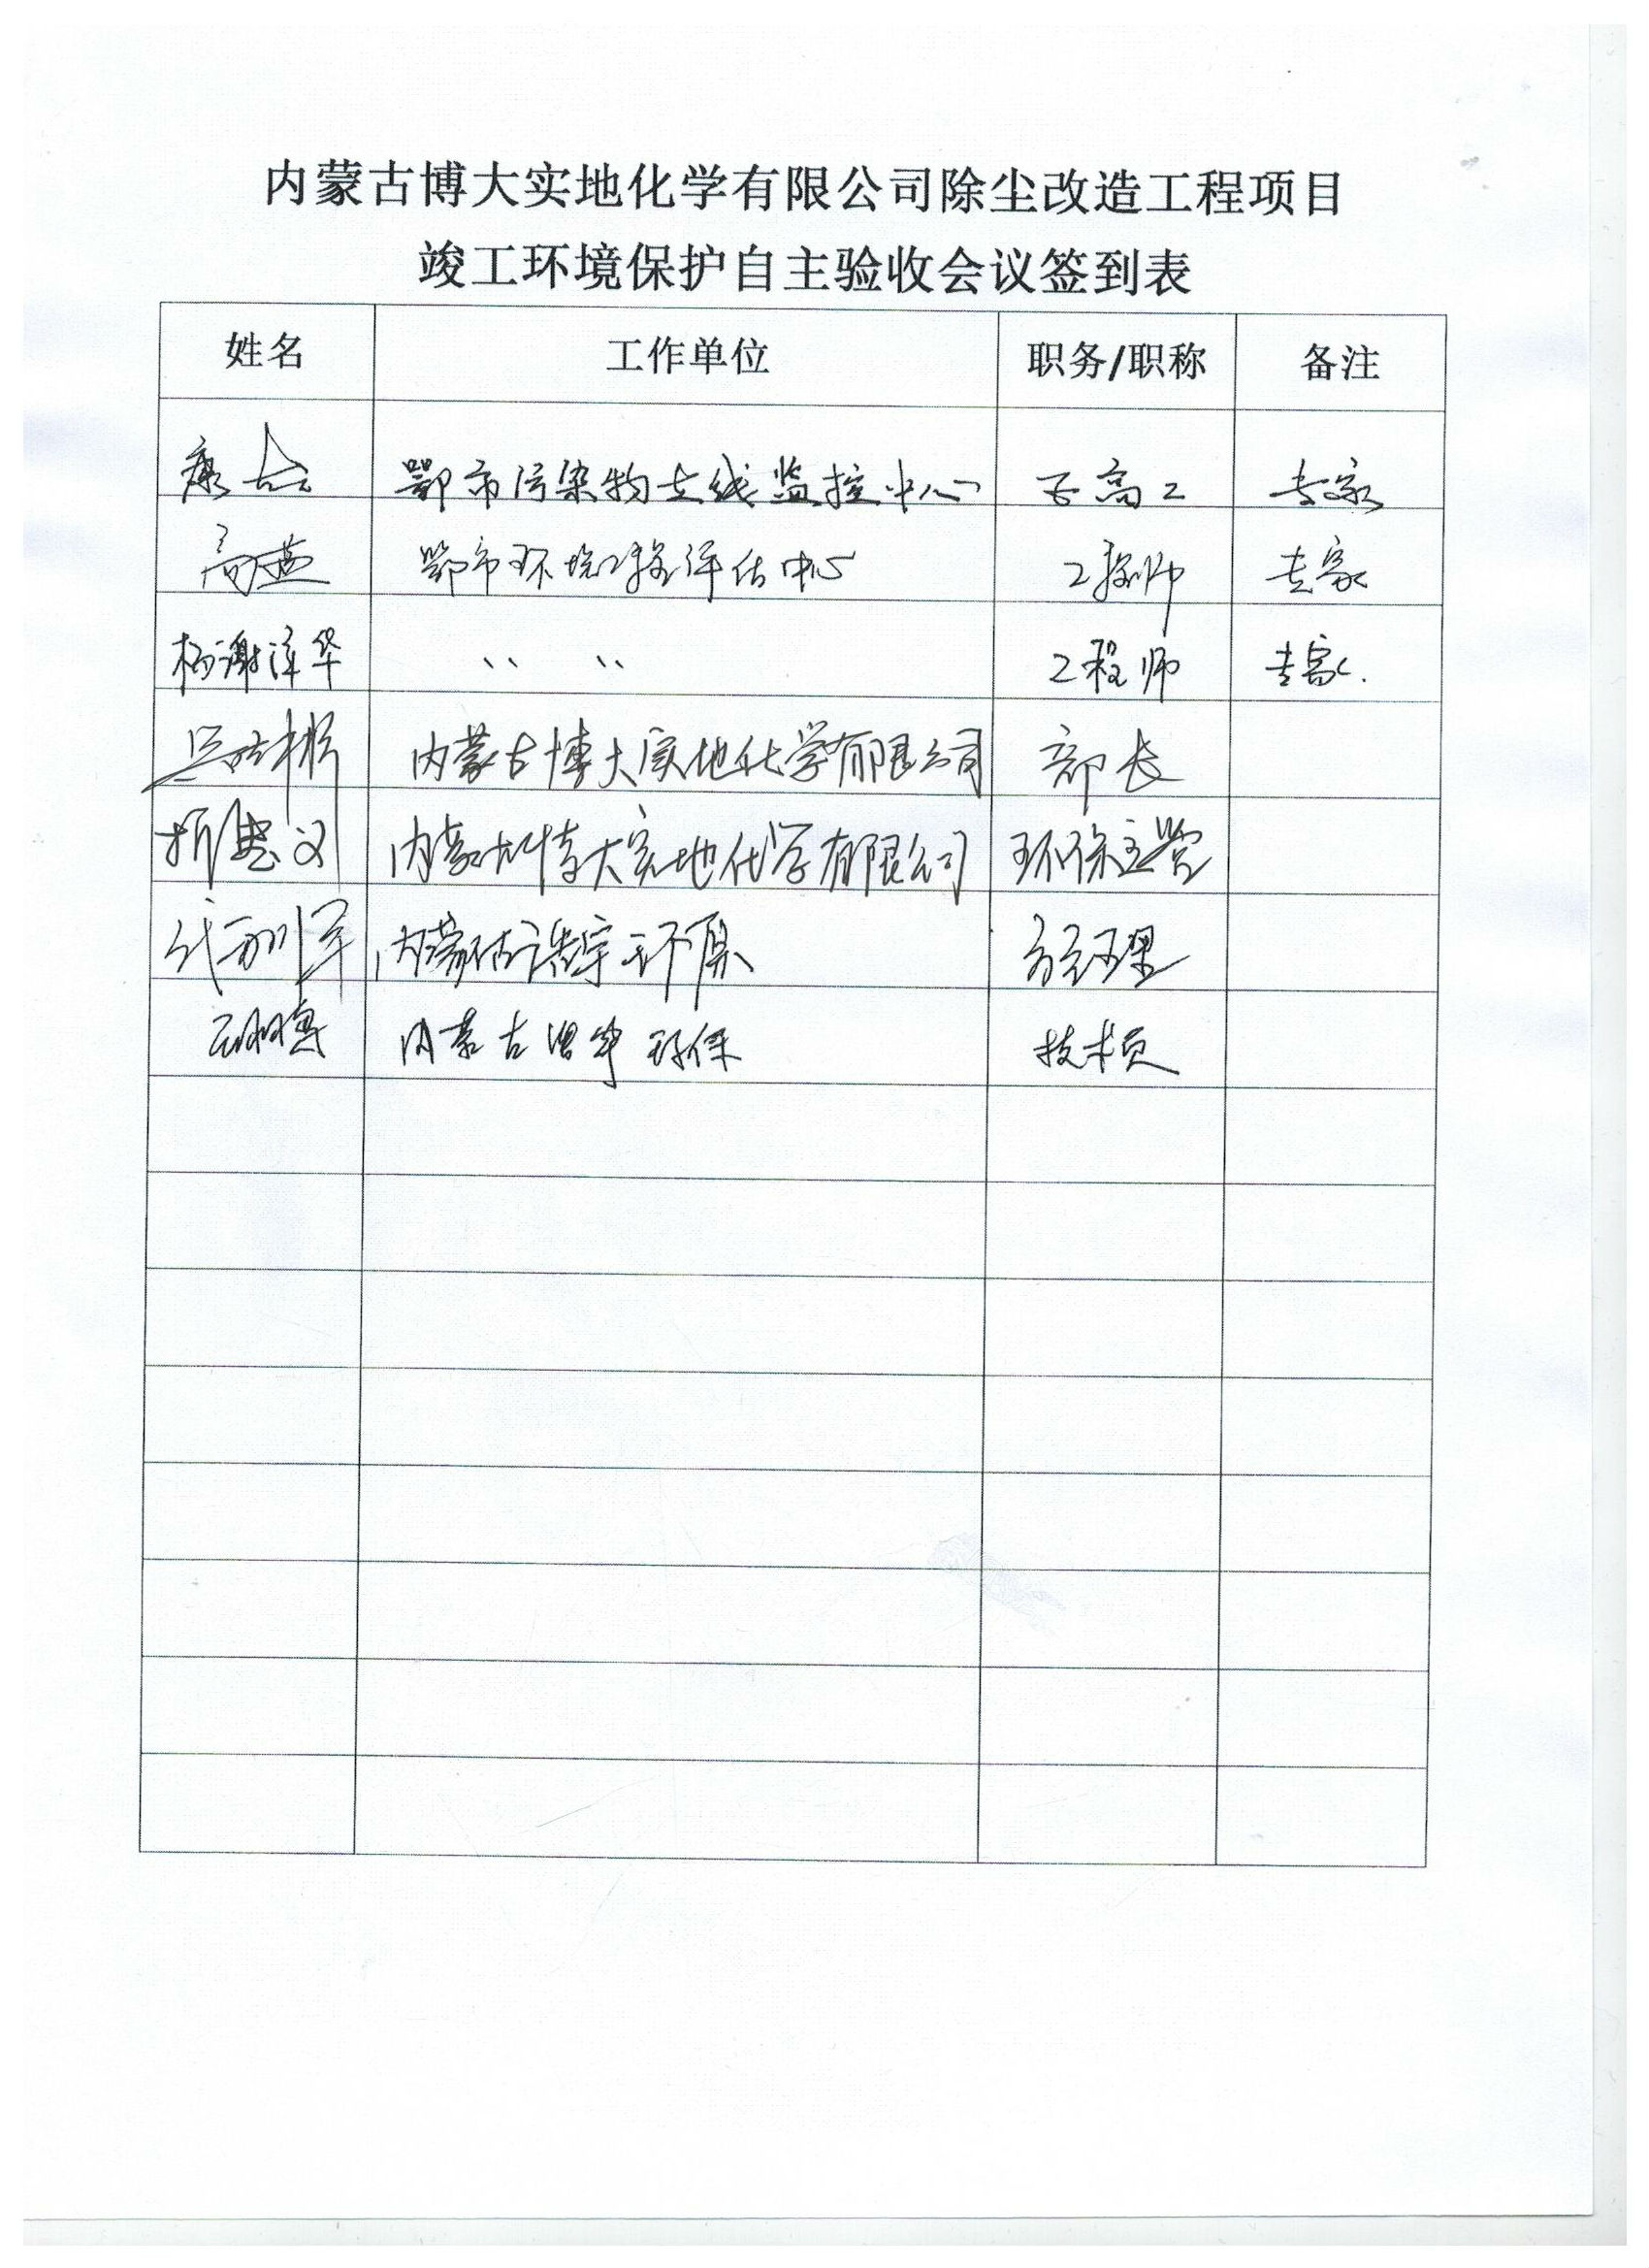 内蒙古博大实地化学有限公司除尘改造工程项目
竣工环境保护自主验收会议签到表
姓名 工作单位 职务/职称 备注
康 鄂市污染物在线监控中心 正高工 专家
高燕 鄂市环境工程评估中心 工程师 专家
杨谢泽华 〃 〃 工程师 专家
内蒙古博大实地化学有限公司 部长
折 义 内蒙古博大实地化学有限公司 环保主管
代 军 内蒙古 环保 经理
内蒙古 环保 技术员